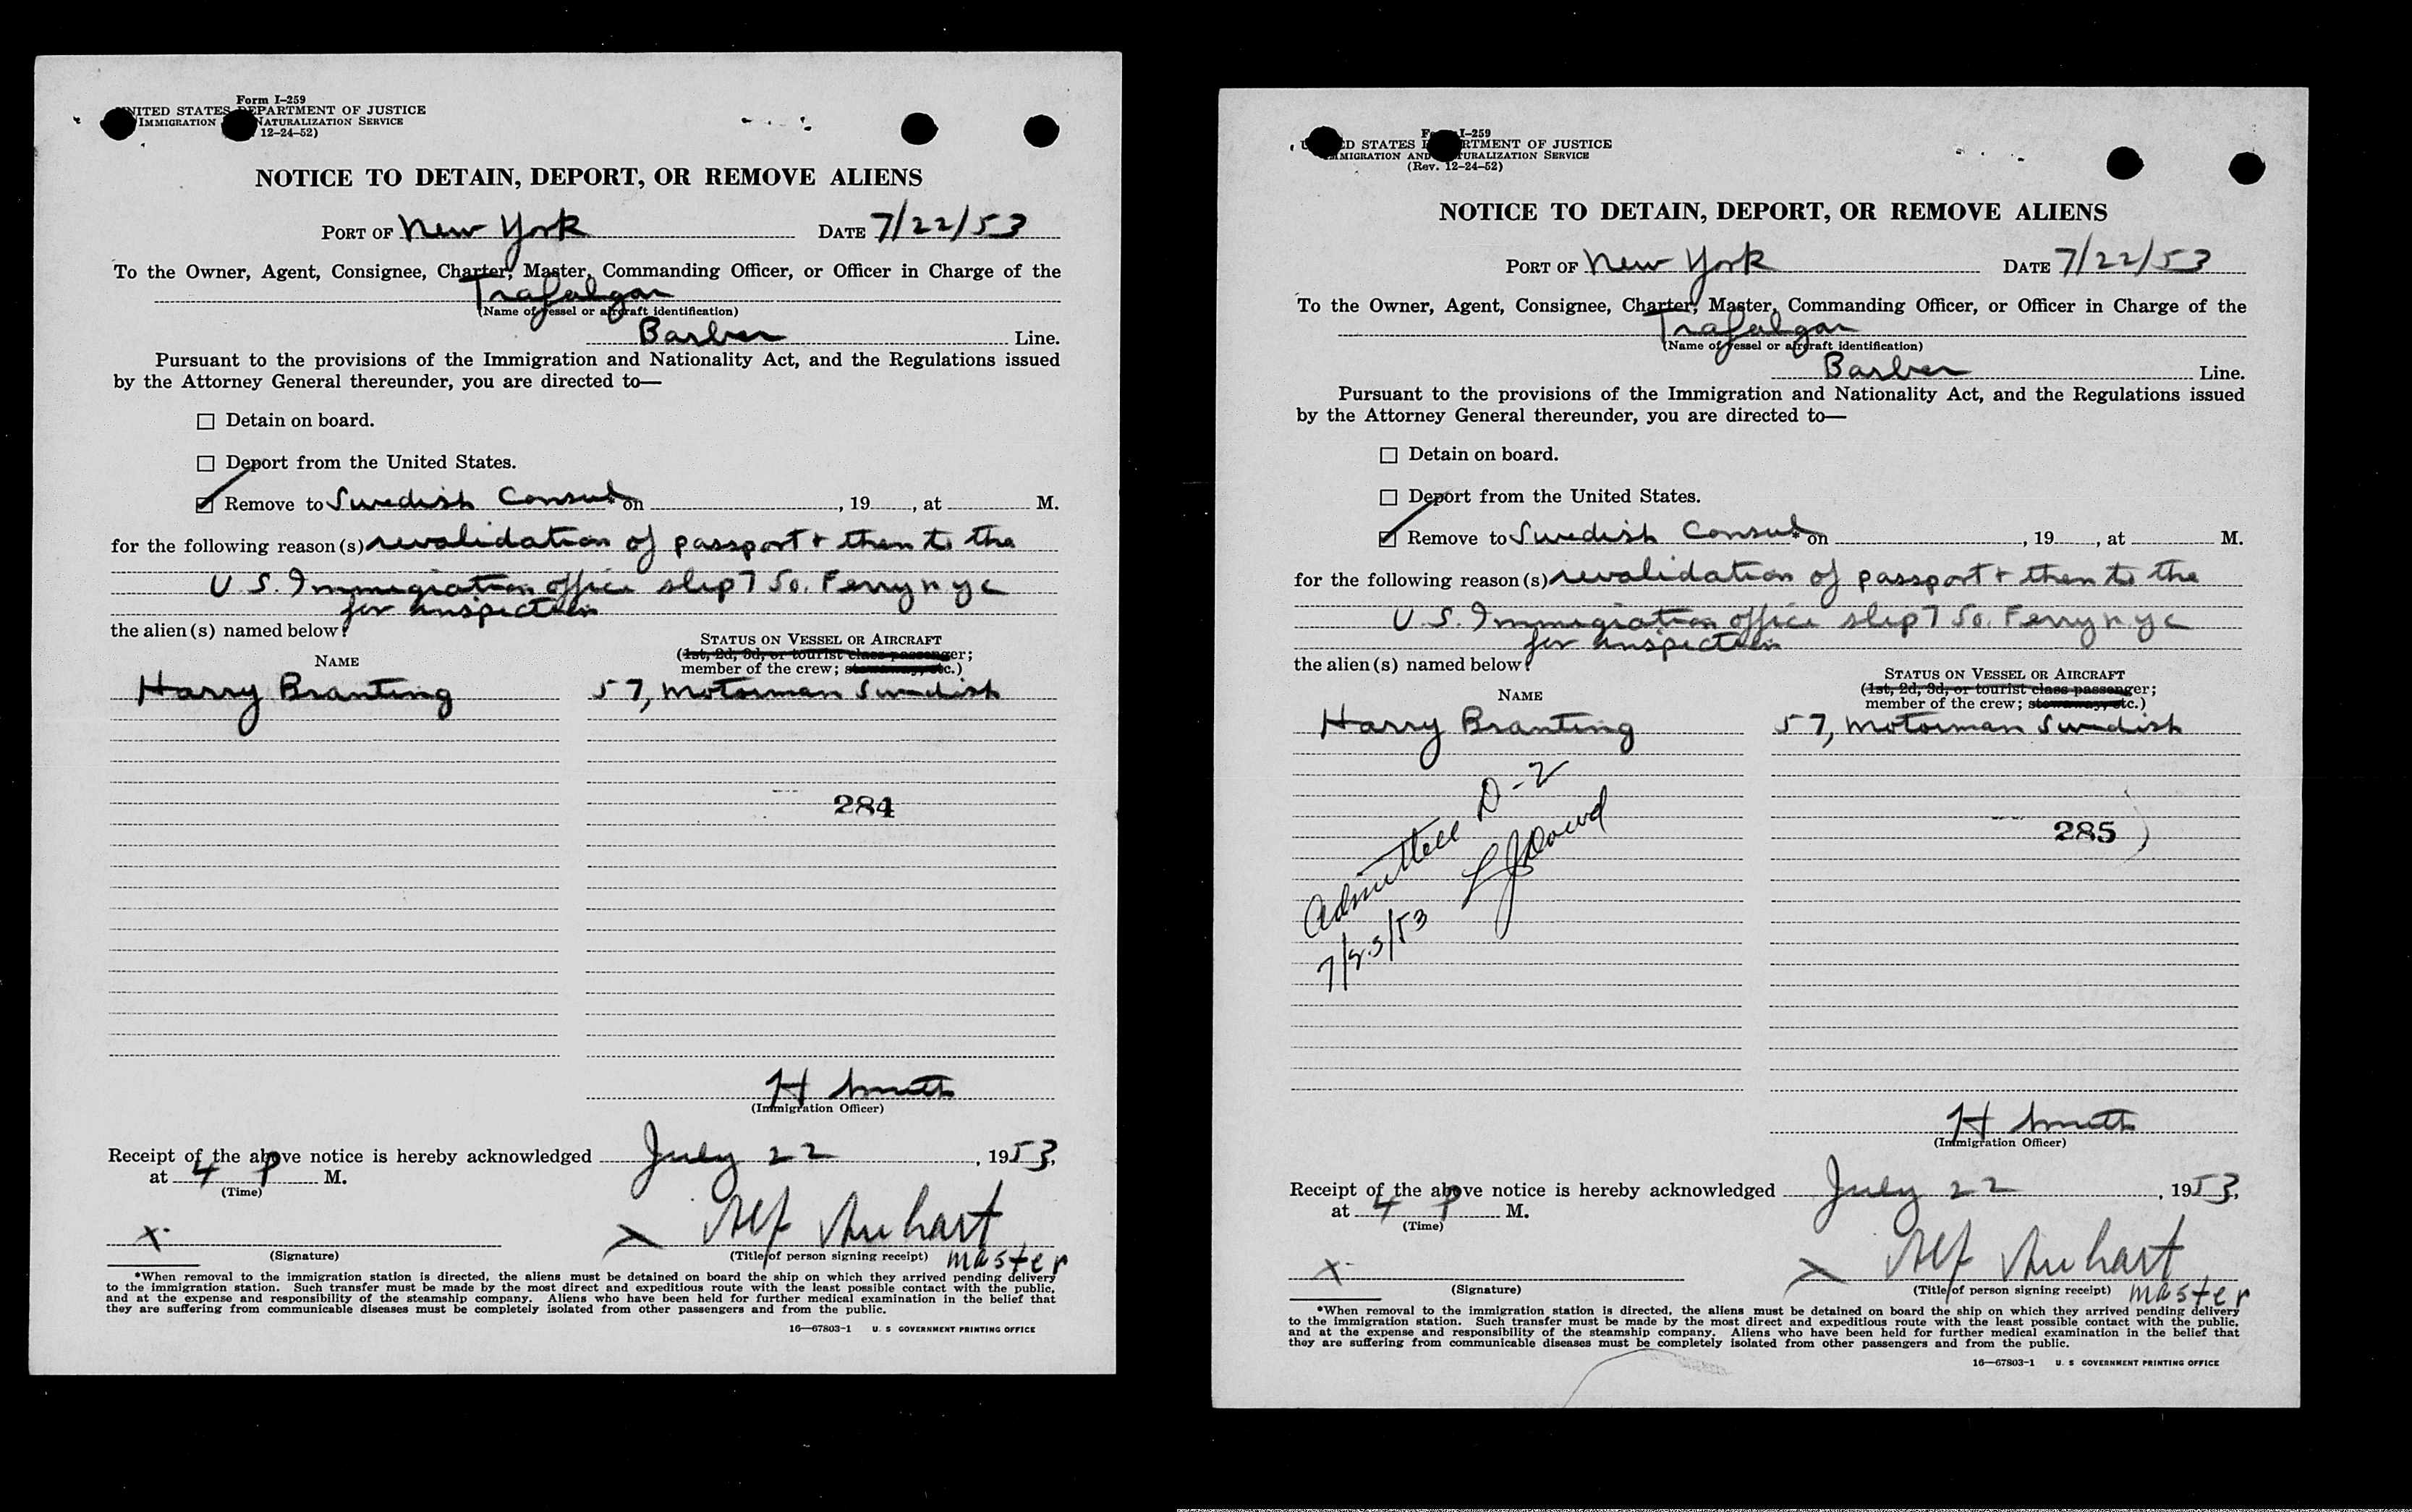 Form I-259
UNITED STATES DEPARTMENT OF JUSTICE
IMMIGRATION NATURALIZATION SERVICE
12-24-52)
NOTICE TO DETAIN, DEPORT, OR REMOVE ALIENS
PORT OF New York DATE 7/22/53
To the Owner, Agent, Consignee, Charter, Master, Commanding Officer, or Officer in Charge of the
Trafalgar
(Name of vessel or aircraft identification)
Barber Line.
Pursuant to the provisions of the Immigration and Nationality Act, and the Regulations issued
by the Attorney General thereunder, you are directed to—
☐ Detain on board.
☐ Deport from the United States.
☑ Remove to Swedish Consul* on , 19 , at M.
for the following reason(s) revalidation of passport + then to the
U.S. Immigration office slip 7 So. Ferry N Y C
for inspection
the alien(s) named below:
NAME
STATUS ON VESSEL OR AIRCRAFT
(1st, 2d, 3d, or tourist class passenger;
member of the crew; stowaway, etc.)
Harry Branting 57, Motorman Swedish
284
H Smith
(Immigration Officer)
Receipt of the above notice is hereby acknowledged July 22, 1953,
at 4 P M.
(Time)
x
(Signature)
(Title of person signing receipt) master
*When removal to the immigration station is directed, the aliens must be detained on board the ship on which they arrived pending delivery
to the immigration station. Such transfer must be made by the most direct and expeditious route with the least possible contact with the public,
and at the expense and responsibility of the steamship company. Aliens who have been held for further medical examination in the belief that
they are suffering from communicable diseases must be completely isolated from other passengers and from the public.
16—67803-1 U. S GOVERNMENT PRINTING OFFICE
Form I-259
UNITED STATES DEPARTMENT OF JUSTICE
IMMIGRATION AND NATURALIZATION SERVICE
(Rev. 12-24-52)
NOTICE TO DETAIN, DEPORT, OR REMOVE ALIENS
PORT OF New York DATE 7/22/53
To the Owner, Agent, Consignee, Charter, Master, Commanding Officer, or Officer in Charge of the
Trafalgar
(Name of vessel or aircraft identification)
Barber Line.
Pursuant to the provisions of the Immigration and Nationality Act, and the Regulations issued
by the Attorney General thereunder, you are directed to—
☐ Detain on board.
☐ Deport from the United States.
☑ Remove to Swedish Consul* on , 19 , at M.
for the following reason(s) revalidation of passport + then to the
U.S. Immigration office slip 7 So. Ferry N Y C
for inspection
the alien(s) named below:
NAME
STATUS ON VESSEL OR AIRCRAFT
(1st, 2d, 3d, or tourist class passenger;
member of the crew; stowaway, etc.)
Harry Branting 57, Motorman Swedish
Admitted D-2
7/23/53 LJ Dowd
285
H Smith
(Immigration Officer)
Receipt of the above notice is hereby acknowledged July 22, 1953,
at 4 P M.
(Time)
x
(Signature)
(Title of person signing receipt) master
*When removal to the immigration station is directed, the aliens must be detained on board the ship on which they arrived pending delivery
to the immigration station. Such transfer must be made by the most direct and expeditious route with the least possible contact with the public,
and at the expense and responsibility of the steamship company. Aliens who have been held for further medical examination in the belief that
they are suffering from communicable diseases must be completely isolated from other passengers and from the public.
16—67803-1 U. S GOVERNMENT PRINTING OFFICE